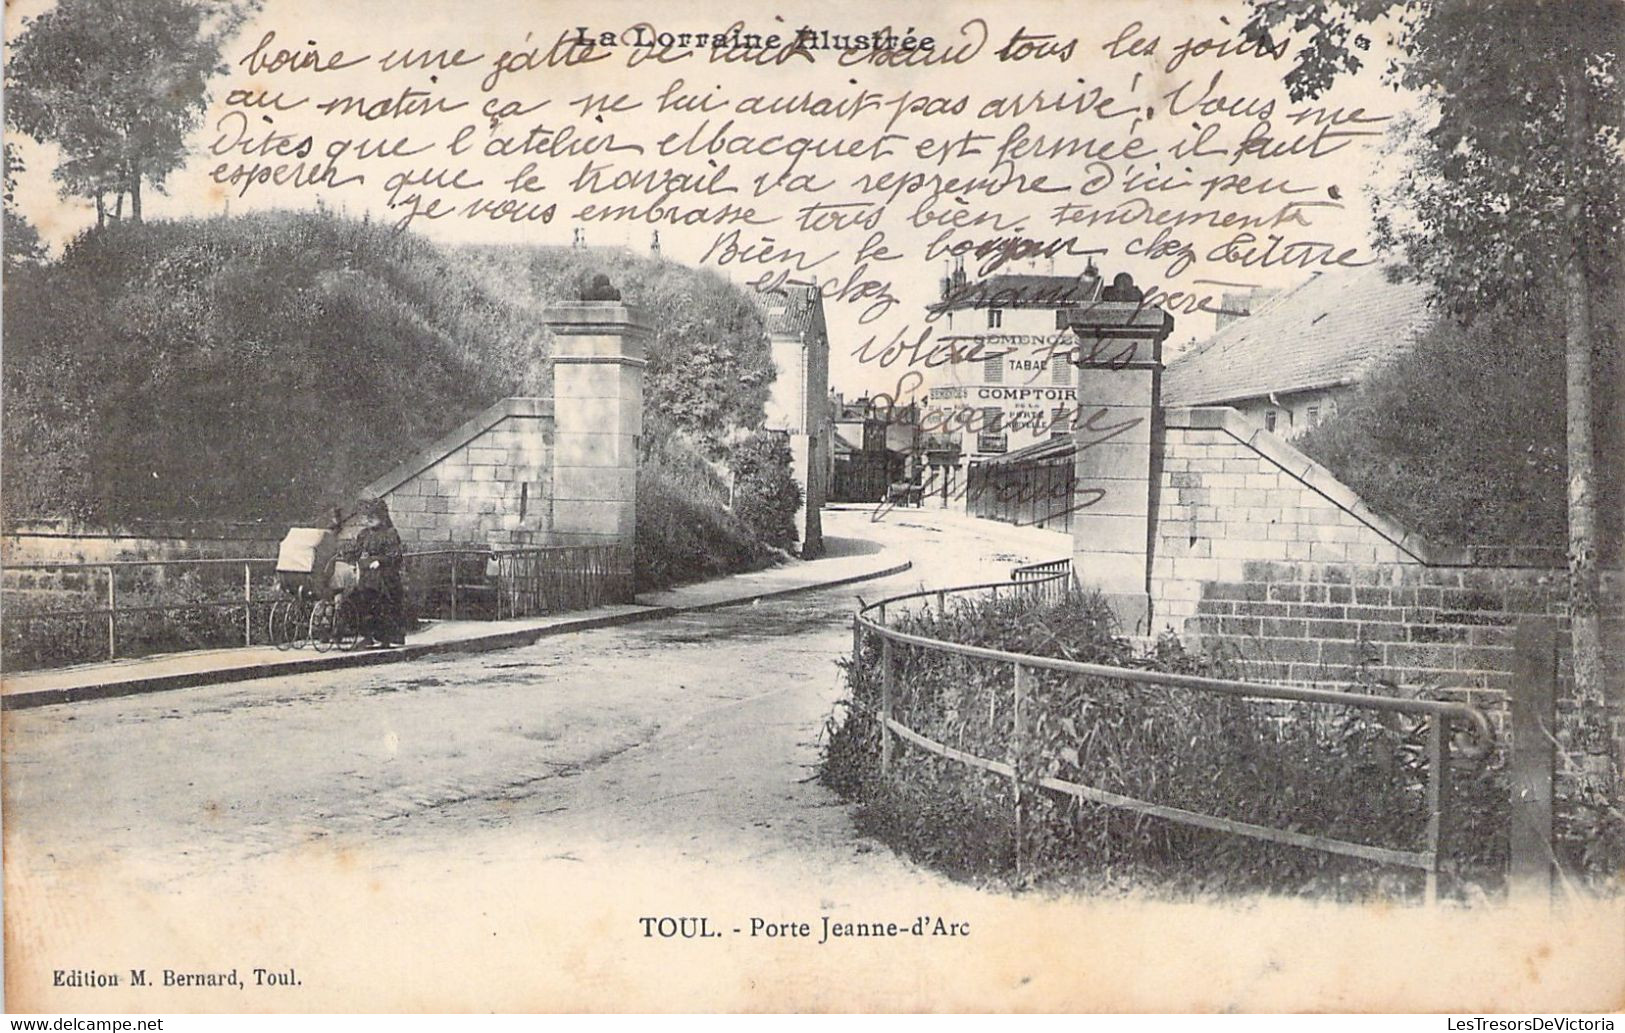 La Lorraine Illustrée
boire une jatte de lait chaud tous les jours
au matin ça ne lui aurait pas arrivé. Vous me
Dites que l'atelier Macquet est fermée il faut
esperer que le travail va reprendre d'ici peu.
Je vous embrasse tous bien tendrement
Bien le bonjour chez
et chez grand pere
Votre fils
SEMENCES
TABAC
SEMENCES COMPTOIR
DE LA
PORTE
TOUL. - Porte Jeanne-d'Arc
Edition M. Bernard, Toul.
LesTresorsDeVictoria